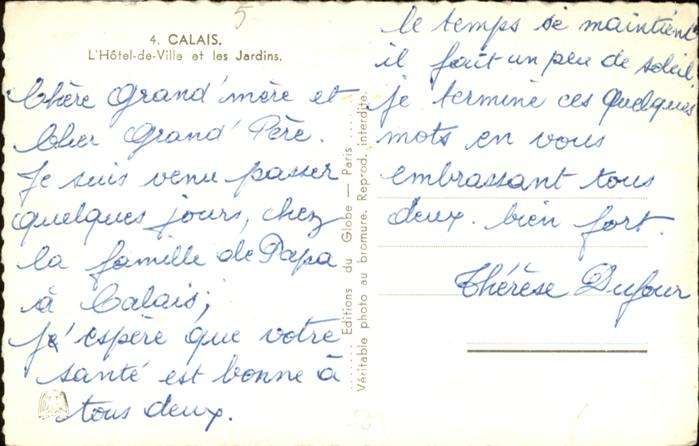 5
4. CALAIS.
L'Hôtel-de-Ville et les Jardins.
Chère Grand'mère et
Cher Grand'Père.
Je suis venu passer
quelques jours, chez
la famille de Papa
à Calais;
j'espère que votre
santé est bonne à
tous deux.
..... Editions du Globe — Paris .....
Véritable photo au bromure. Reprod. interdite.
le temps se maintient
il fait un peu de soleil.
je termine ces quelques
mots en vous
embrassant tous
deux. bien fort.
Thérèse Dufour